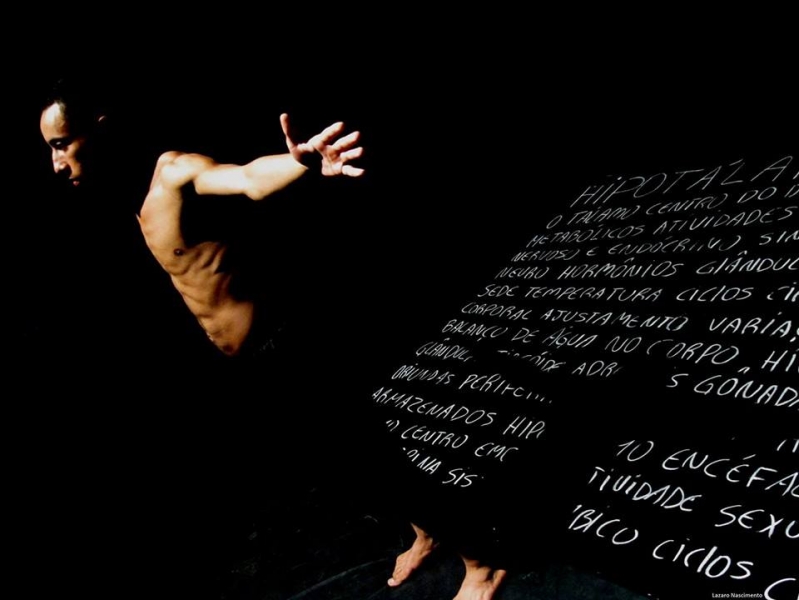 HIPOTÁLA
O TÁLAMO CENTRO DO
METABÓLICOS ATIVIDADES
NERVOSO E ENDÓCRINO SIN
NEURO HORMÔNIOS GLÂNDUL
SEDE TEMPERATURA CICLOS CI
CORPORAL AJUSTAMENTO VARIA
BALANÇO DE ÁGUA NO CORPO, HI
GLÂNDUL ADR S GÔNADA
ORIUNDAS
ARMAZENADOS HIP
CENTRO EMO
INA SIS
10 ENCÉFA
TIVIDADE SEXU
BICO CICLOS C
Lazaro Nascimento